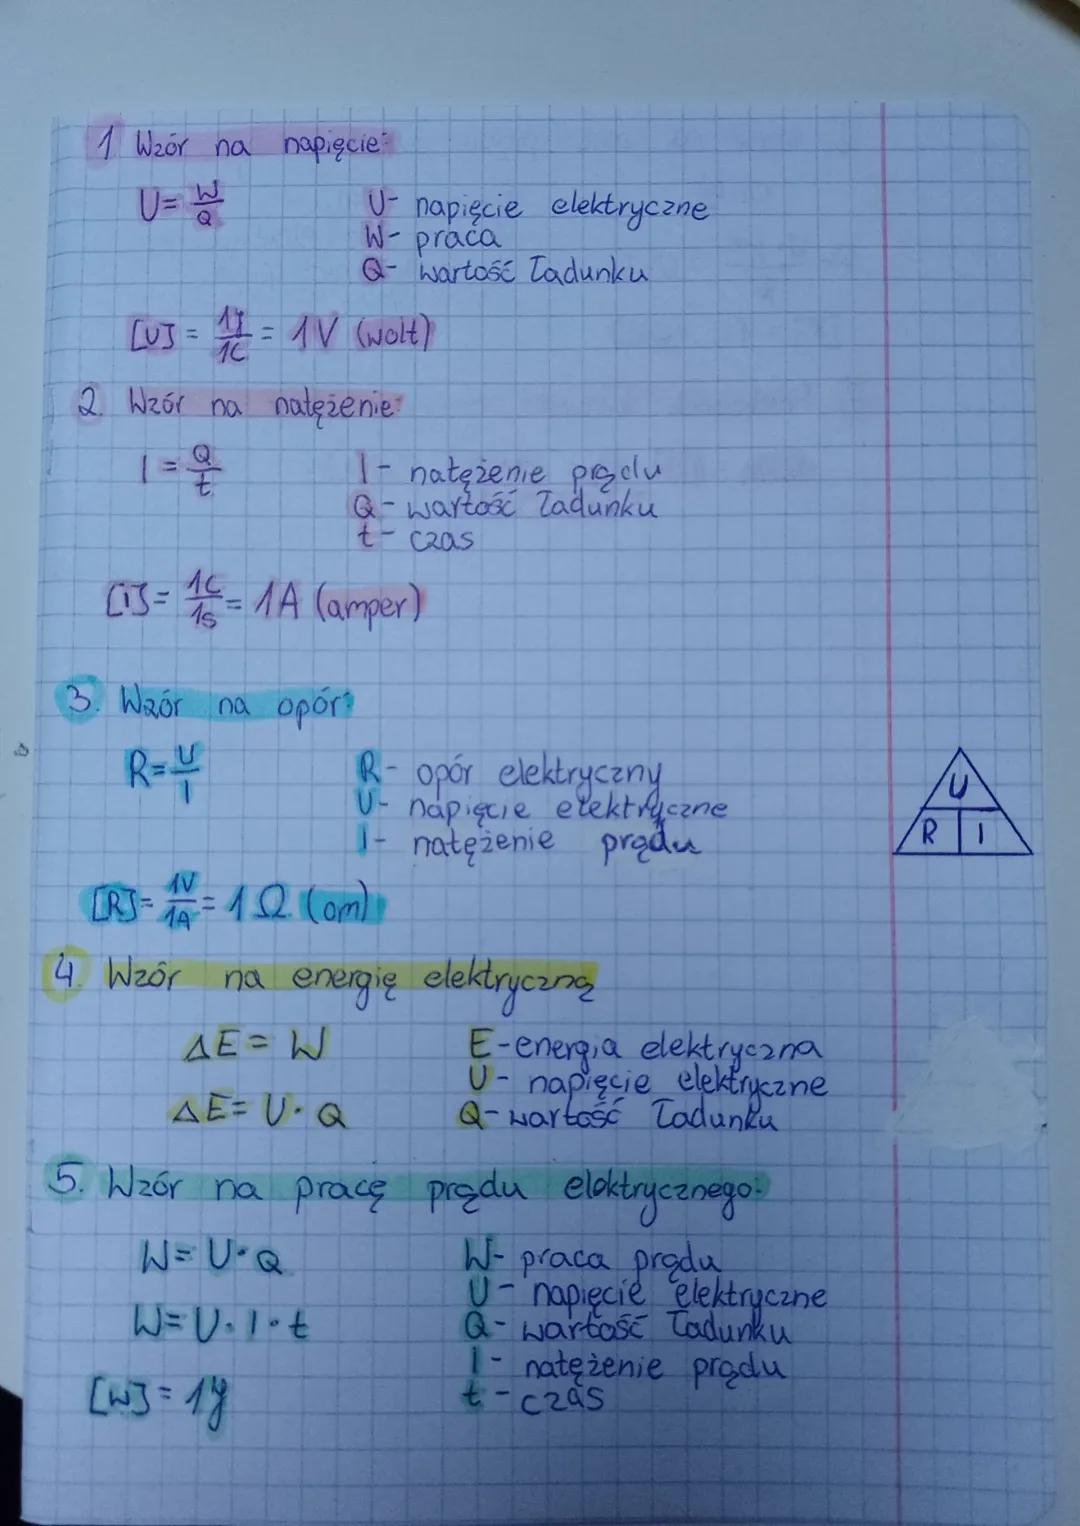 1 Wzór na napięcie:
U = W/Q
U- napięcie elektryczne
W- praca
Q- wartość ładunku
[U] = 1J/1C = 1V (wolt)
2. Wzór na natężenie:
I = Q/t
I - natężenie prądu
Q - wartość ładunku
t - czas
[I] = 1C/1s = 1A (amper)
3. Wzór na opór:
R = U/I
R - opór elektryczny
U - napięcie elektryczne
I - natężenie prądu
U
R I
[R] = 1V/1A = 1Ω (om)
4. Wzór na energię elektryczną
ΔE = W
E - energia elektryczna
U - napięcie elektryczne
ΔE = U · Q
Q - wartość ładunku
5. Wzór na pracę prądu elektrycznego:
W = U · Q
W - praca prądu
U - napięcie elektryczne
W = U · I · t
Q - wartość ładunku
I - natężenie prądu
[W] = 1J
t - czas